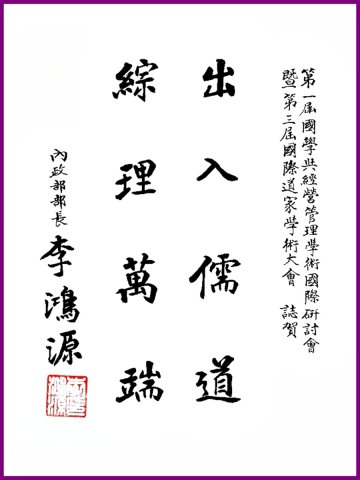 第一屆國學與經營管理學術國際研討會
暨第三屆國際道家學術大會 誌賀
出入儒道
綜理萬端
內政部部長 李鴻源